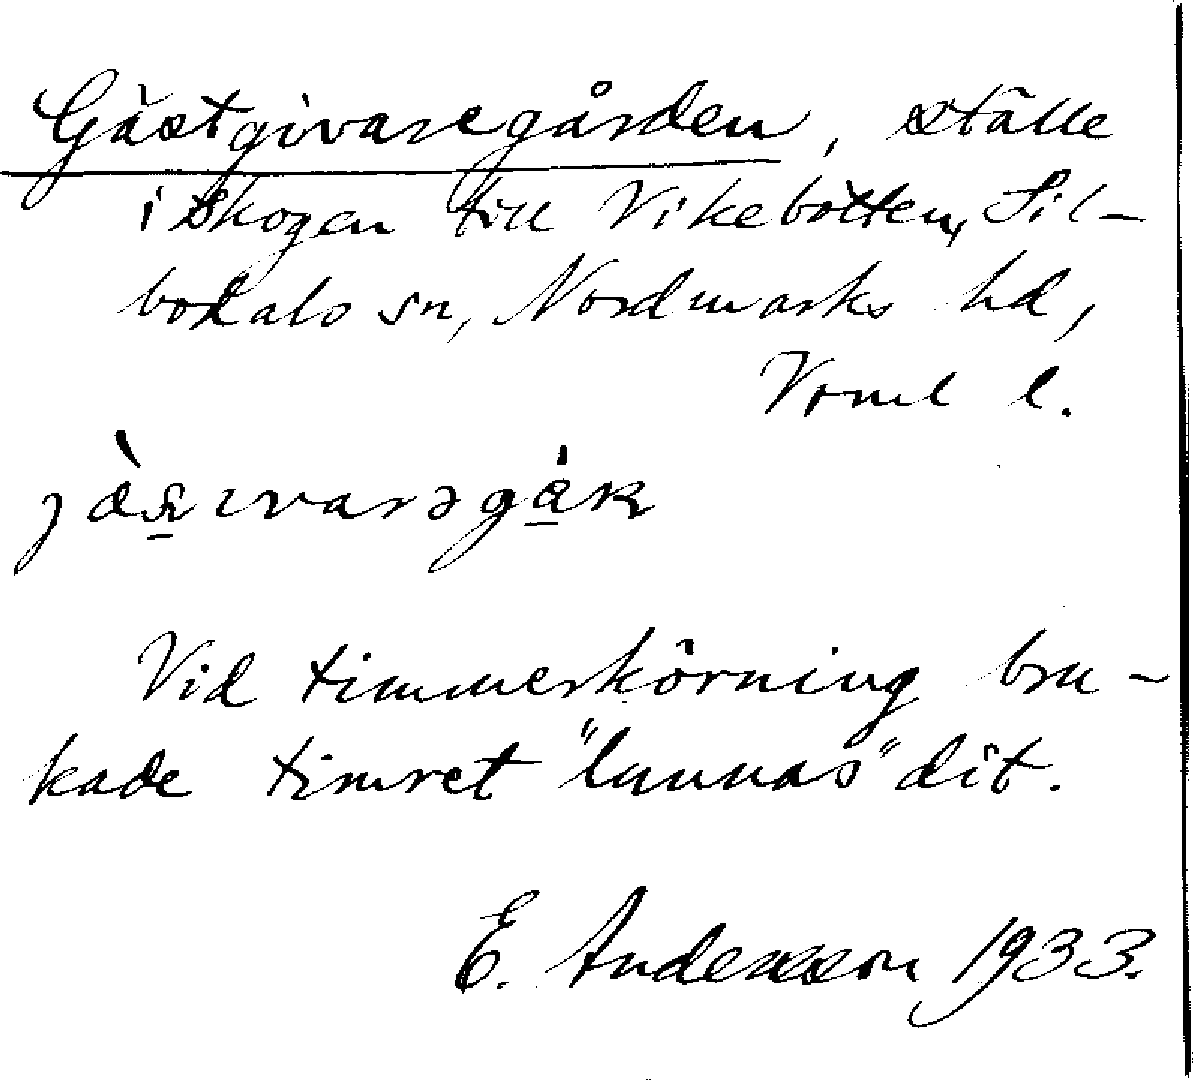 Gästgivaregården, ställe
i skogen till Vikebotten, Sil-
bodals sn, Nordmarks hd,
Vrml l.
Vid timmerkörning bru-
kade timret "lunnas" dit.
E. Andersson 1933.